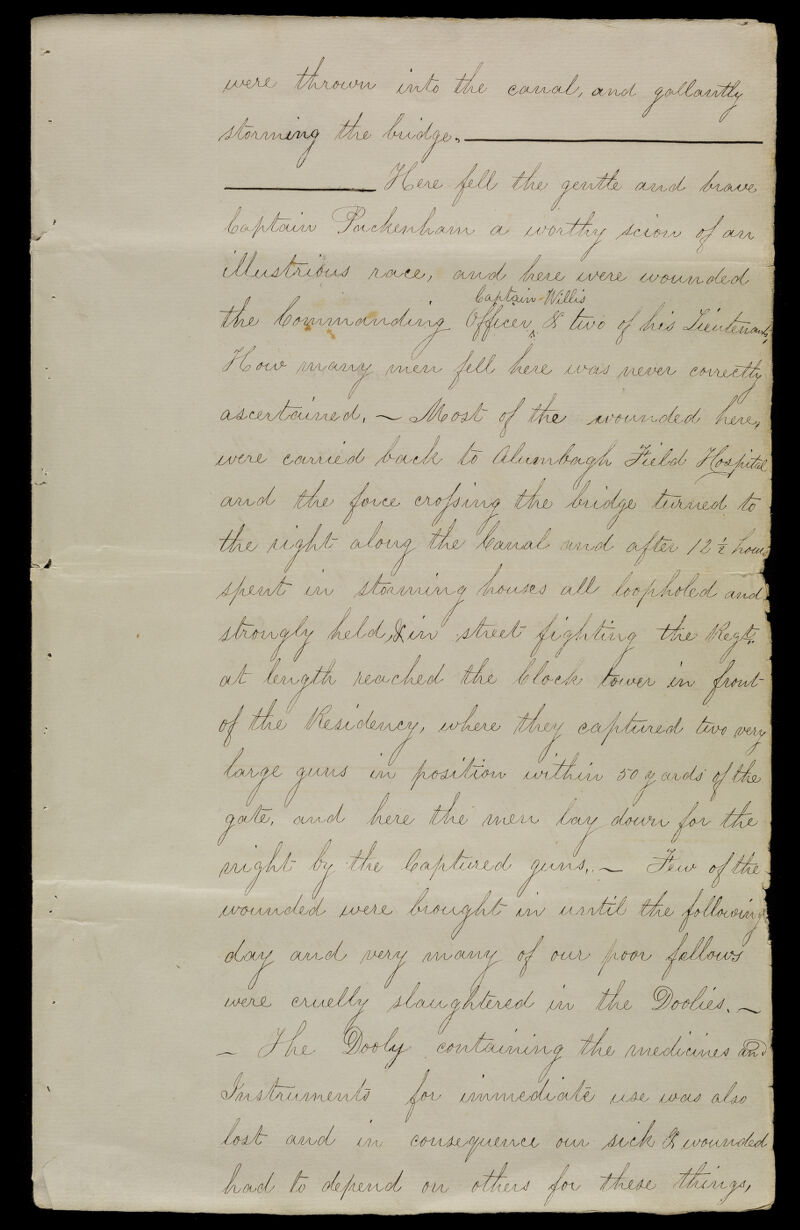 were thrown into the canal, and gallantly
storming the bridge.
Here fell the gentle and brave
Captain Packenham a worthy scion of an
illustrious race, and here were wounded
Captain Willis
the Commanding Officer ^ & two of his Lieutenants,
How many men fell here was never correctly
ascertained. — Most of the wounded here,
were carried back to Alumbagh Field Hospital
and the force crossing the bridge turned to
the right along the Canal and after 12 ½ hours
spent in storming houses all loopholed and
strongly held, & in street fighting the Regt.
at length reached the Clock tower in front
of the Residency, where they captured two very
large guns in position within 50 yards of the
gate, and here the men lay down for the
night by the Captured guns. — Few of the
wounded were brought in until the following
day and very many of our poor fellows
were cruelly slaughtered in the Doolies. —
— The Dooly containing the medicines and
Instruments for immediate use was also
lost and in consequence our sick & wounded
had to depend on others for these things,